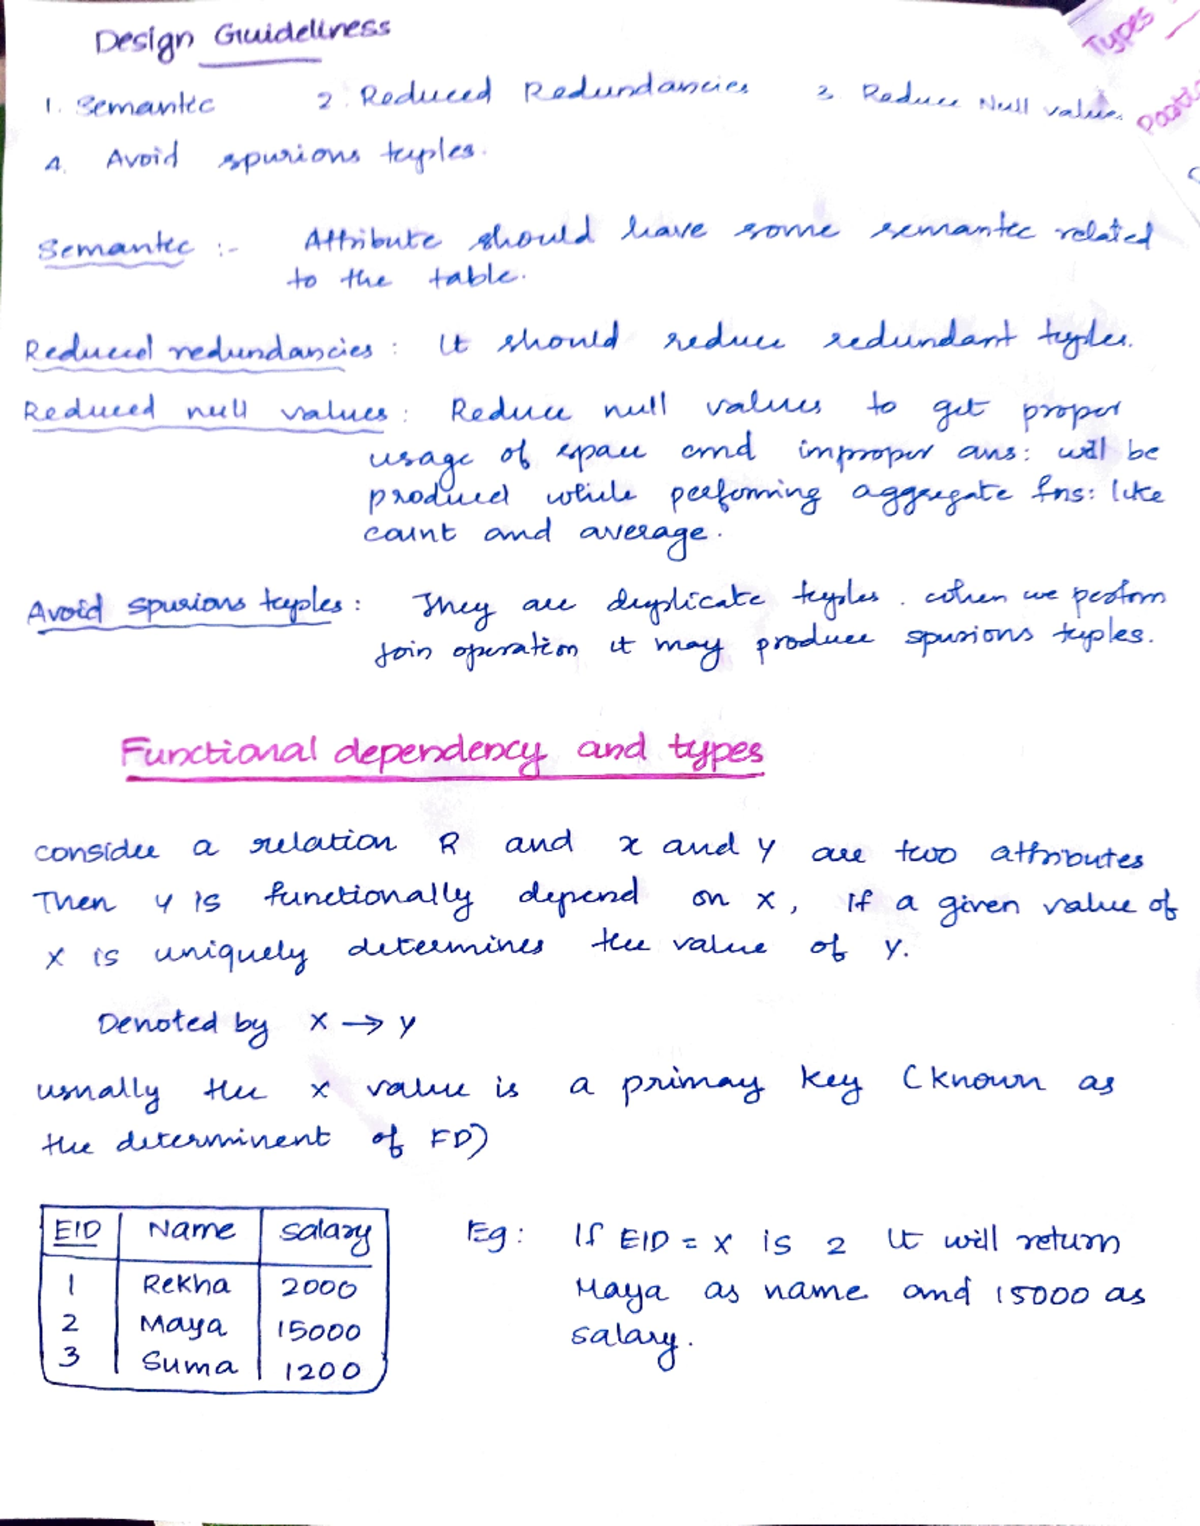 Design Guideliness
Types
1. Semantic 2. Reduced Redundancies 3. Reduce Null values.
4. Avoid spurions tuples.
Semantic :- Attribute should have some semantic related
to the table.
Reduced redundancies : It should reduce redundant tuples.
Reduced null values : Reduce null values to get proper
usage of space and improper ans: will be
produced while performing aggregate fns: like
count and average.
Avoid spurions tuples : They are duplicate tuples. when we perform
join operation it may produce spurions tuples.
Functional dependency and types
consider a relation R and x and y are two attributes
Then y is functionally depend on x, if a given value of
x is uniquely determines the value of y.
Denoted by x → y
usually the x value is a primay key (known as
the determinent of FD)
EID Name salary
1 Rekha 2000
2 Maya 15000
3 Suma 1200
Eg: If EID = x is 2 It will return
Maya as name and 15000 as
salary.